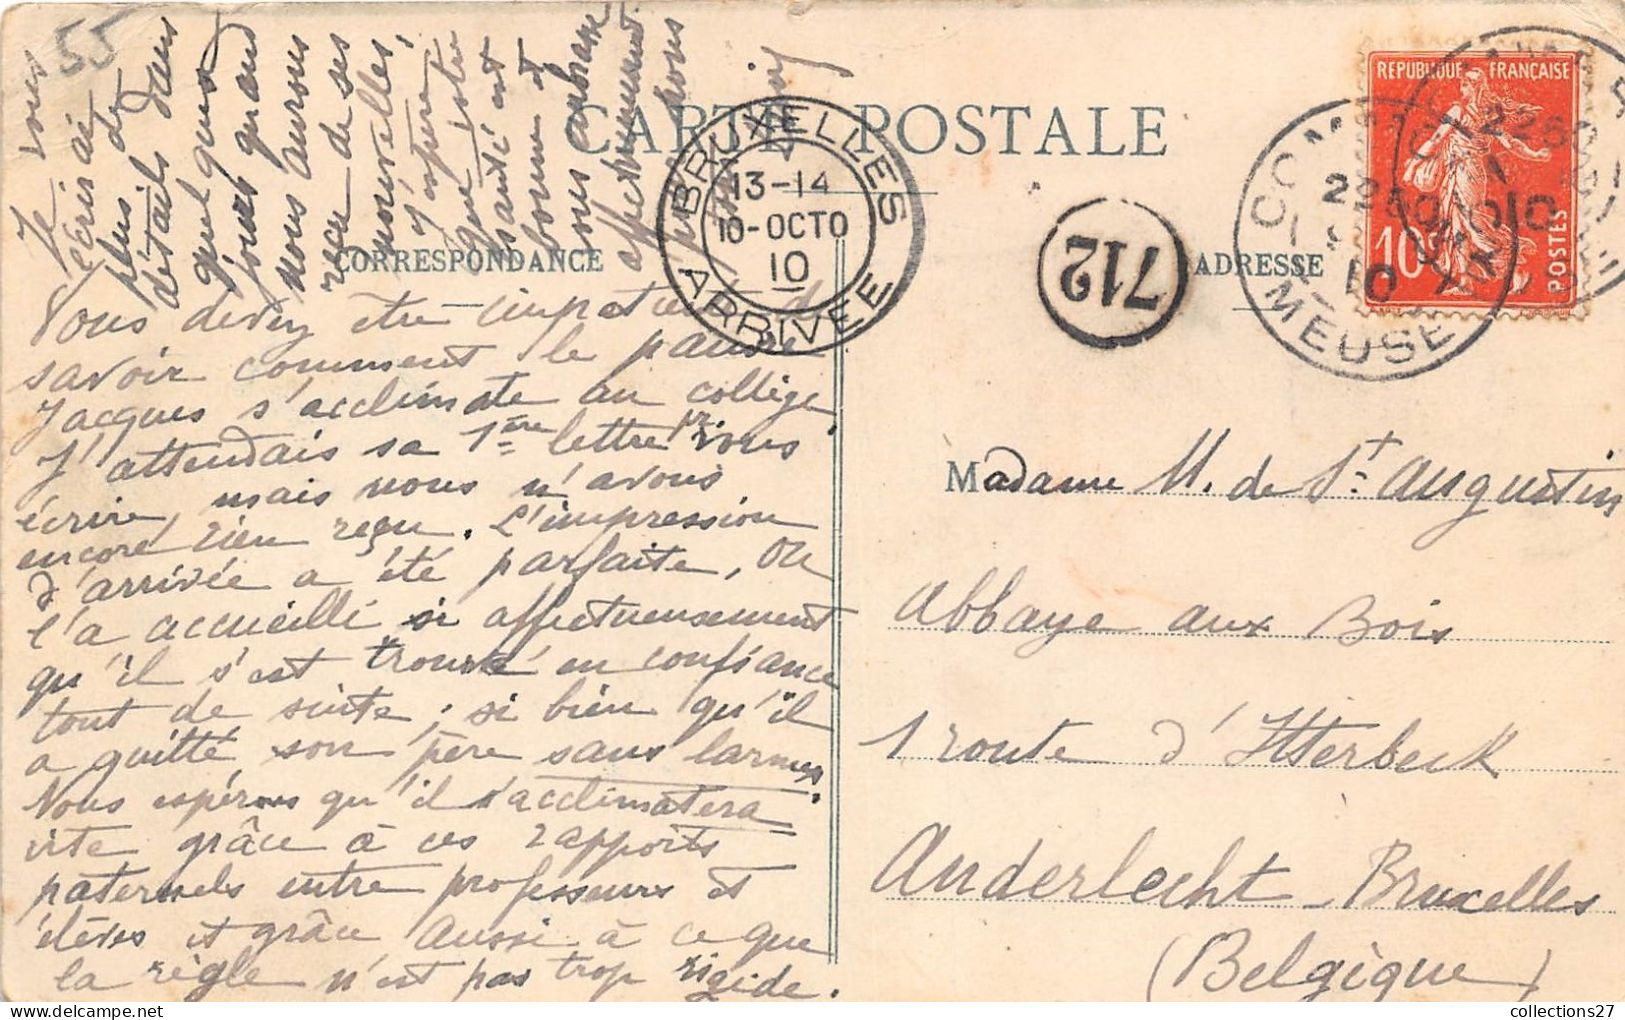 CARTE POSTALE
CORRESPONDANCE
ADRESSE
55
RÉPUBLIQUE FRANÇAISE
10
POSTES
BRUXELLES
13-14
10-OCTO
10
ARRIVÉE
712
MEUSE
Vous devez être impatiente de
savoir comment le pauvre
Jacques s'acclimate au collège.
J'attendais sa 1ère lettre pr vous
écrire, mais nous n'avons
encore rien reçu. L'impression
d'arrivée a été parfaite, on
l'a accueilli si affectueusement
qu'il s'est trouvé en confiance
tout de suite; si bien qu'il
a quitté son père sans larmes.
Nous espérons qu'il s'acclimatera
vite grâce à ces rapports
paternels entre professeurs et
élèves et grâce aussi à ce que
la règle n'est pas trop rigide.
Je vous
écrirai
plus de
détails dans
quelques
jours quand
nous aurons
reçu de ses
nouvelles,
J'espère
que votre
santé est
bonne et
vous embrasse
affectueusement
Madame M. de St. Augustin
Abbaye aux Bois
1 route d'Itterbeck
Anderlecht-Bruxelles
(Belgique)
collections27